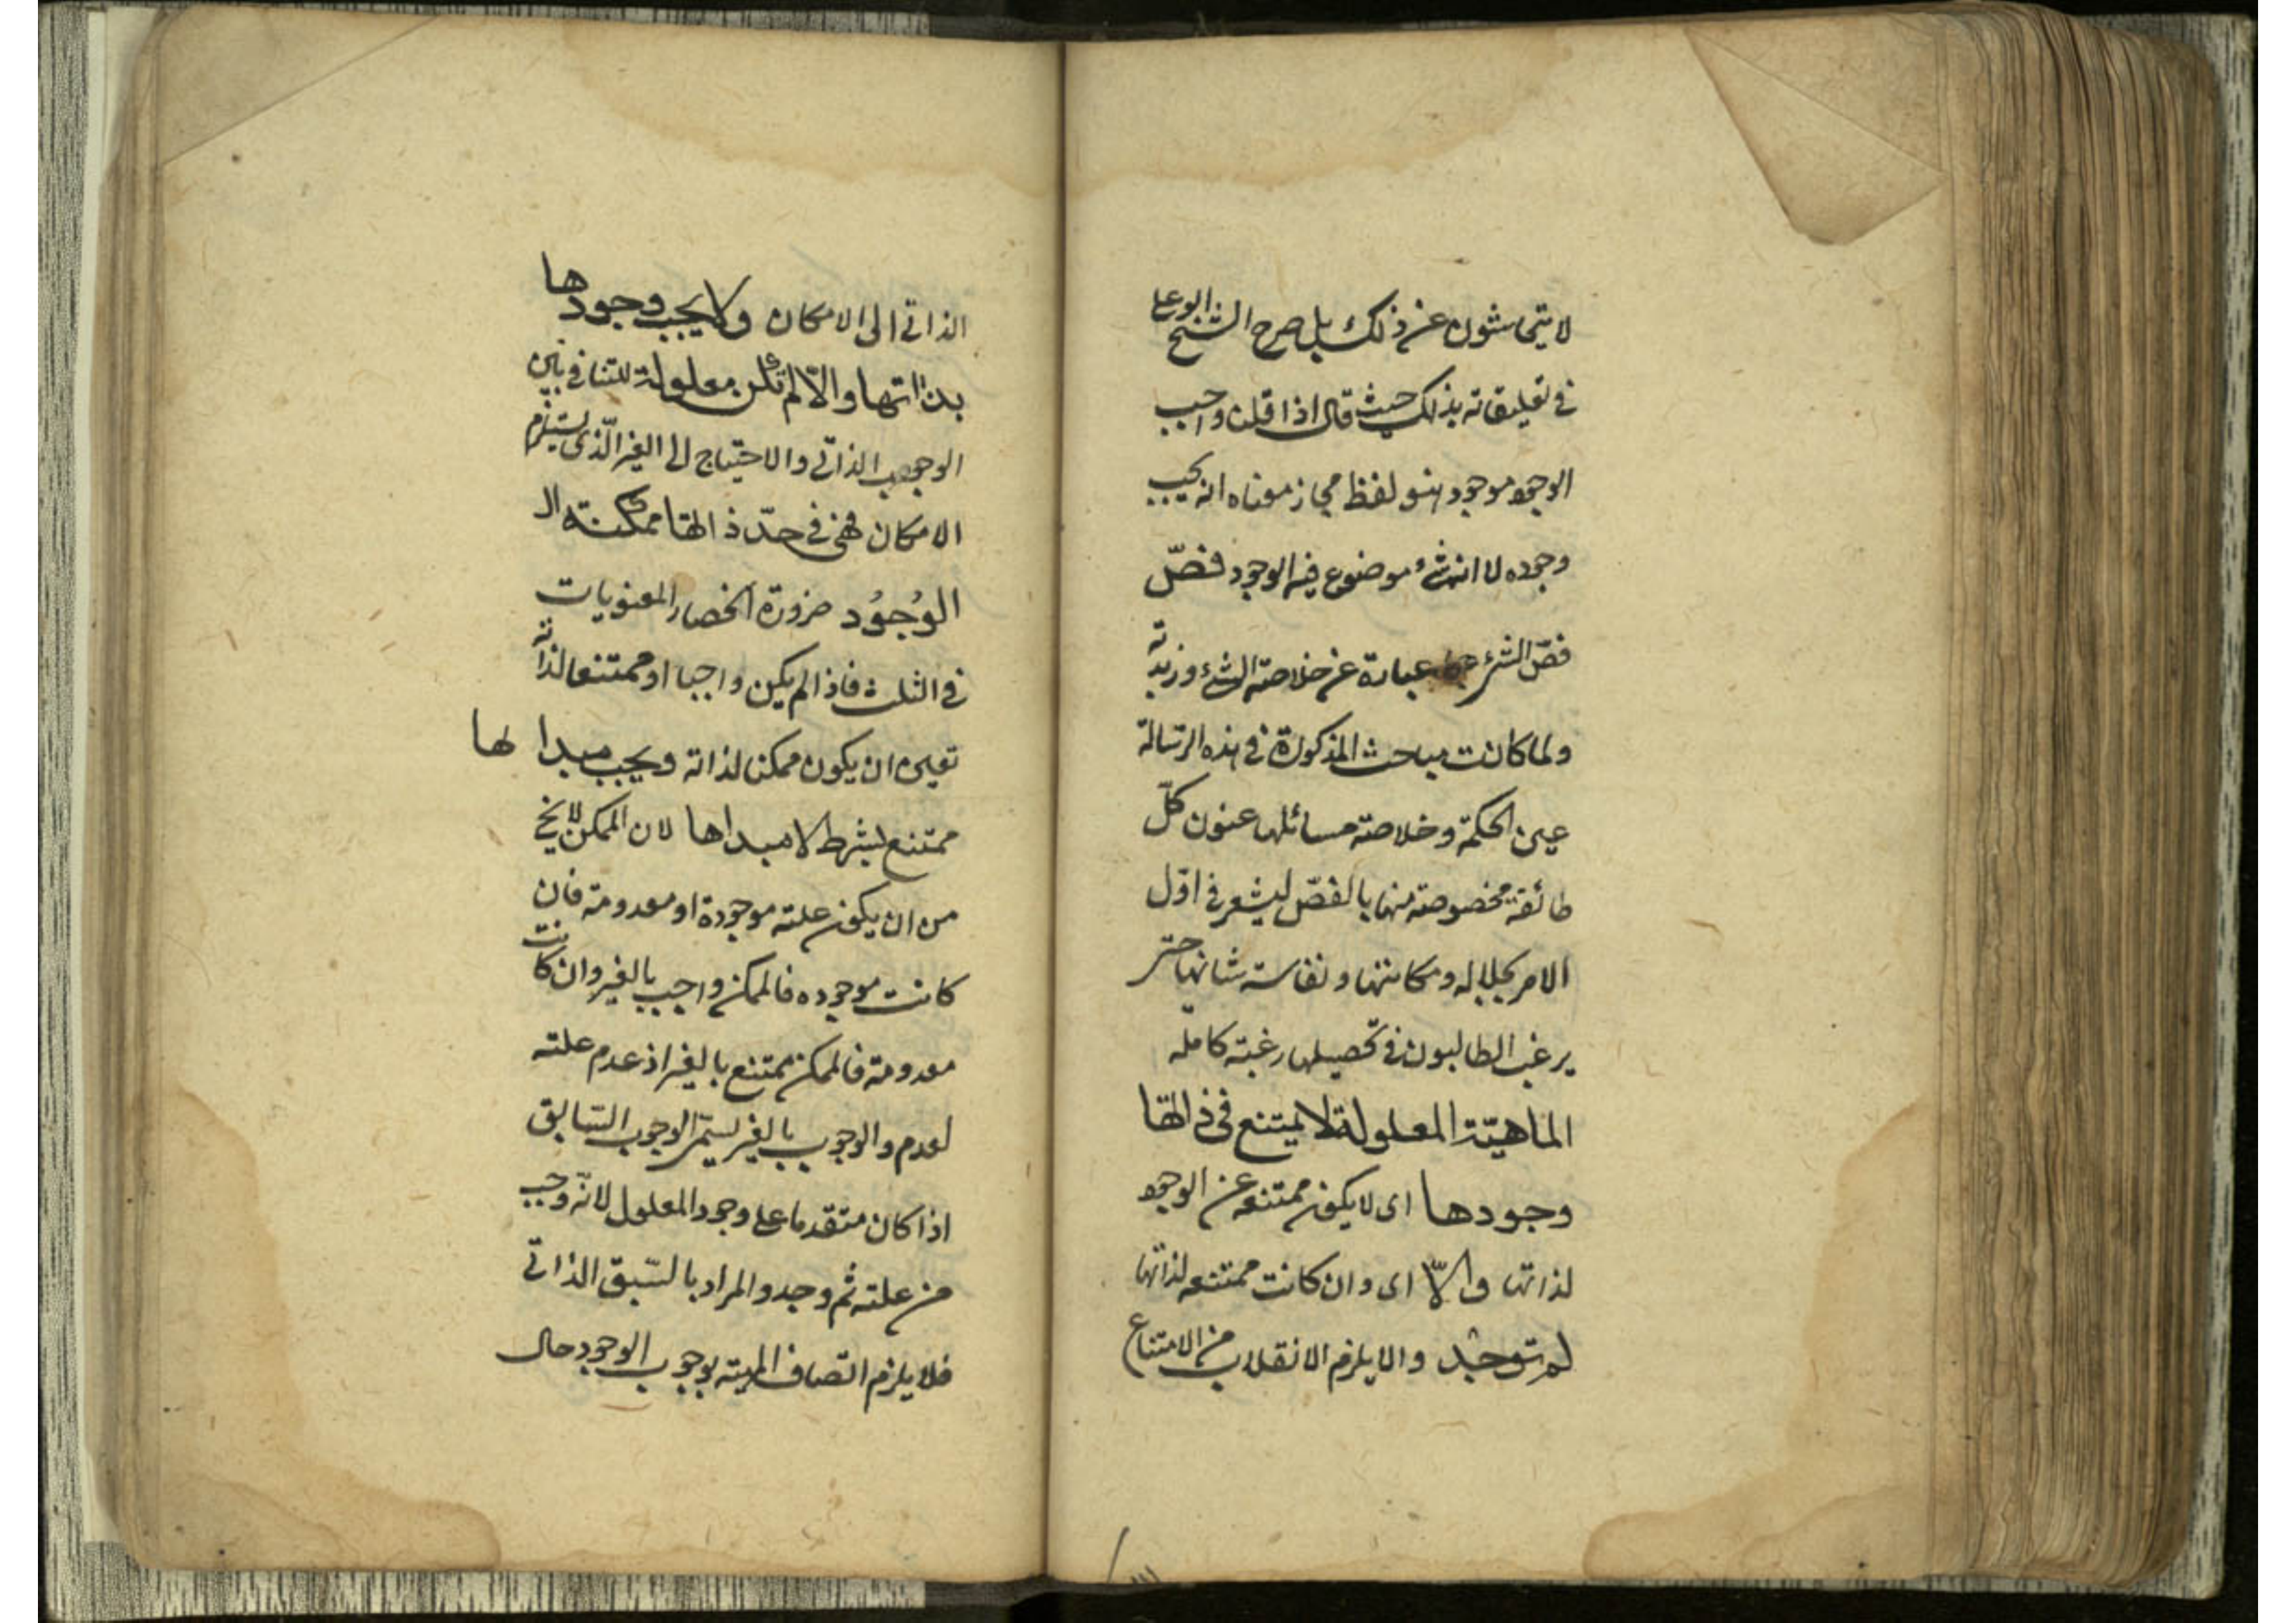 لا يتحاشون عن ذلك بل صرح الشيخ ابو علي
في تعليقاته بذلك حيث قال اذا قلنا واجب
الوجود موجود فهو لفظ مجاز معناه انه يجب
وجوده لا انه شئ موضوع فيه الوجود فصّ
فصّ الشئ عبارة عن خلاصة الشئ وزبدته
ولما كانت مباحث المذكورة في هذه الرسالة
عين الحكمة وخلاصة مسائلها عنون كلّ
طائفة مخصوصة منها بالفصّ ليشعر في اوّل
الامر بجلاله ومكانتها ونفاسة شانها حتى
يرغب الطالبون في تحصيلها رغبة كاملة
الماهيّة المعلولة لا يمتنع في ذاتها
وجودها اى لا يكون ممتنعه عن الوجود
لذاتها والّا اى وان كانت ممتنعه لذاتها
لم توجد والا يلزم الانقلاب من الامتناع
الذاتي الى الامكان ولا يجب وجودها
بذاتها والّا لم تكن معلولة للتنافي بين
الوجوب الذاتي والاحتياج الى الغير الّذى يستلزم
الامكان فهي في حدّ ذاتها ممكنة
الوُجوُد ضرورة انحصار المعنويات
في الثلث فاذا لم يكن واجبا او ممتنعا لذاته
تعين ان يكون ممكنا لذاته ويجب مبدا لها
ممتنع بشرط لا مبداها لان الممكن لا يخ
من ان يكون علته موجودة او معدومة فان
كانت موجوده فالممكن واجب بالغير وان كانت
معدومة فالممكن ممتنع بالغير اذ عدم علته
لعدم والوجوب بالغير يسمّى الوجوب السّابق
اذا كان متقدما على وجود المعلول لانّه وجب
من علته ثم وجد والمراد بالسّبق الذاتي
فلا يلزم اتّصاف المهية بوجوب الوجود حال